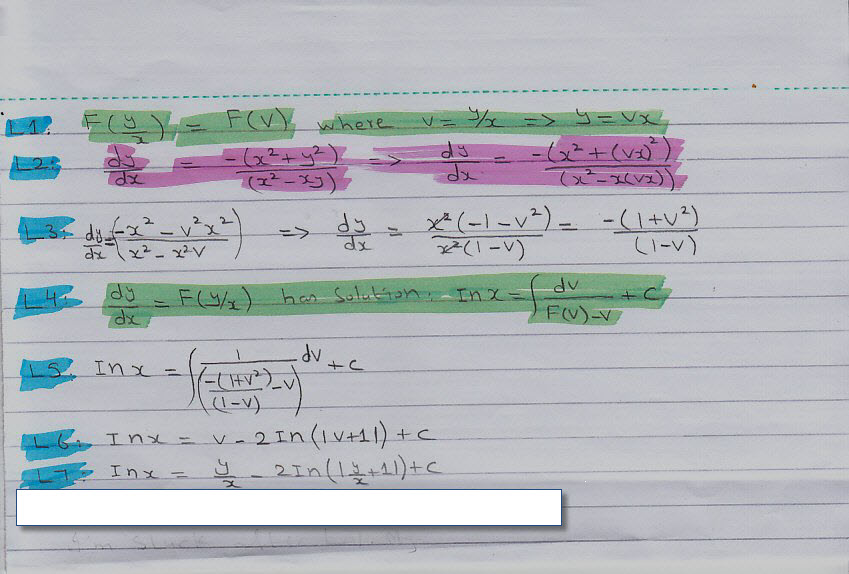 L1: F(y/x) = F(V) where v = y/x => y = Vx
L2: dy/dx = -(x²+y²)/(x²-xy) => dy/dx = -(x²+(vx)²)/(x²-x(vx))
L3: dy/dx = (-x²-v²x²/x²-x²v) => dy/dx = x²(-1-v²)/x²(1-v) = -(1+v²)/(1-v)
L4: dy/dx = F(y/x) has solution. In x = ∫ dv/F(v)-v + c
L5: In x = ∫ 1/(-(1+v²)/(1-v) - v) dv + c
L6: In x = v - 2In(|v+1|) + c
L7: In x = y/x - 2In(|y/x+1|) + c